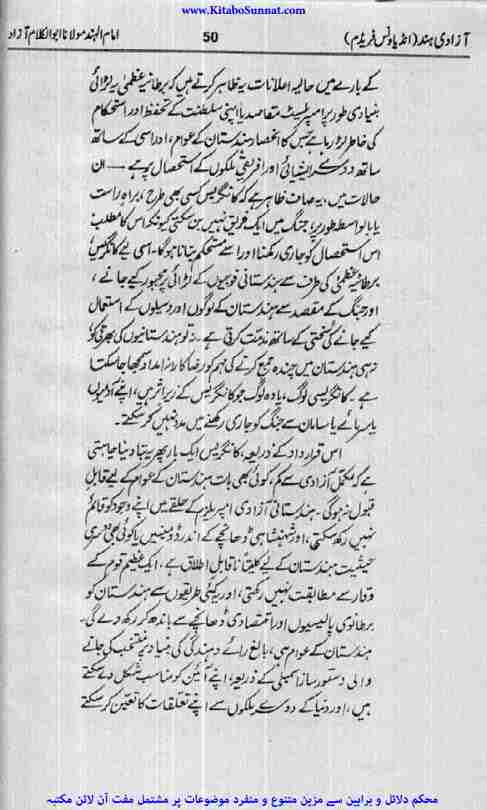 www.KitaboSunnat.com
آزادی ہند (انڈیا ونس فریڈم)
50
امام الہند مولانا ابوالکلام آزاد
کے بارے میں حالیہ اعلانات یہ ظاہر کرتے ہیں کہ برطانیہ عظمیٰ یہ لڑائی
بنیادی طور پر امپیریلسٹ مقاصد یا اپنی سلطنت کے تحفظ اور استحکام
کی خاطر لڑ رہا ہے جس کا انحصار ہندستان کے عوام، اور اسی کے ساتھ
ساتھ دوسرے ایشیائی اور افریقی ملکوں کے استحصال پر ہے ۔۔۔ ان
حالات میں، یہ صاف ظاہر ہے کہ کانگریس کسی بھی طرح، براہ راست
یا بالواسطہ طور پر، جنگ میں ایک فریق نہیں بن سکتی کیونکہ اس کا مطلب
اس استحصال کو جاری رکھنا اور اسے مستحکم بنانا ہوگا۔ اسی لیے کانگریس
برطانیہ عظمیٰ کی طرف سے ہندستانی فوجیوں کے لڑائی پر مجبور کیے جانے،
اور جنگ کے مقصد سے ہندستان کے لوگوں اور وسیلوں کے استعمال
کیے جانے کی سختی کے ساتھ مذمت کرتی ہے۔ نہ تو ہندستانیوں کی بھرتی کو
نہ ہی ہندستان میں چندہ جمع کرنے کی مہم کو رضاکارانہ امداد سمجھا جاسکتا
ہے۔ کانگریسی لوگ، یا وہ لوگ جو کانگریس کے زیر اثر ہیں، اپنے آدمیوں
یا سرمائے یا سامان سے جنگ کو جاری رکھنے میں مدد نہیں کر سکتے۔
اس قرارداد کے ذریعہ، کانگریس ایک بار پھر یہ بتا دینا چاہتی
ہے کہ مکمل آزادی سے کم، کوئی بھی بات ہندستان کے عوام کے لیے قابل
قبول نہ ہوگی۔ ہندستانی آزادی امپیریلزم کے حلقے میں اپنے وجود کو قائم
نہیں رکھ سکتی، اور شہنشاہی ڈھانچے کے اندر ڈومینین یا کوئی بھی دوسری
حیثیت ہندستان کے لیے کلیتاً ناقابل اطلاق ہے، ایک عظیم قوم کے
وقار سے مطابقت نہیں رکھتی، اور یہ کئی طریقوں سے ہندستان کو
برطانوی پالیسیوں اور اقتصادی ڈھانچے سے باندھ کر رکھ دے گی۔
ہندستان کے عوام ہی، بالغ رائے دہندگی کی بنیاد پر منتخب کی جانے
والی دستور ساز اسمبلی کے ذریعہ، اپنے آئین کو مناسب شکل دے سکتے
ہیں، اور دنیا کے دوسرے ملکوں سے اپنے تعلقات کا تعین کر سکتے
محکم دلائل و براہین سے مزین متنوع و منفرد موضوعات پر مشتمل مفت آن لائن مکتبہ